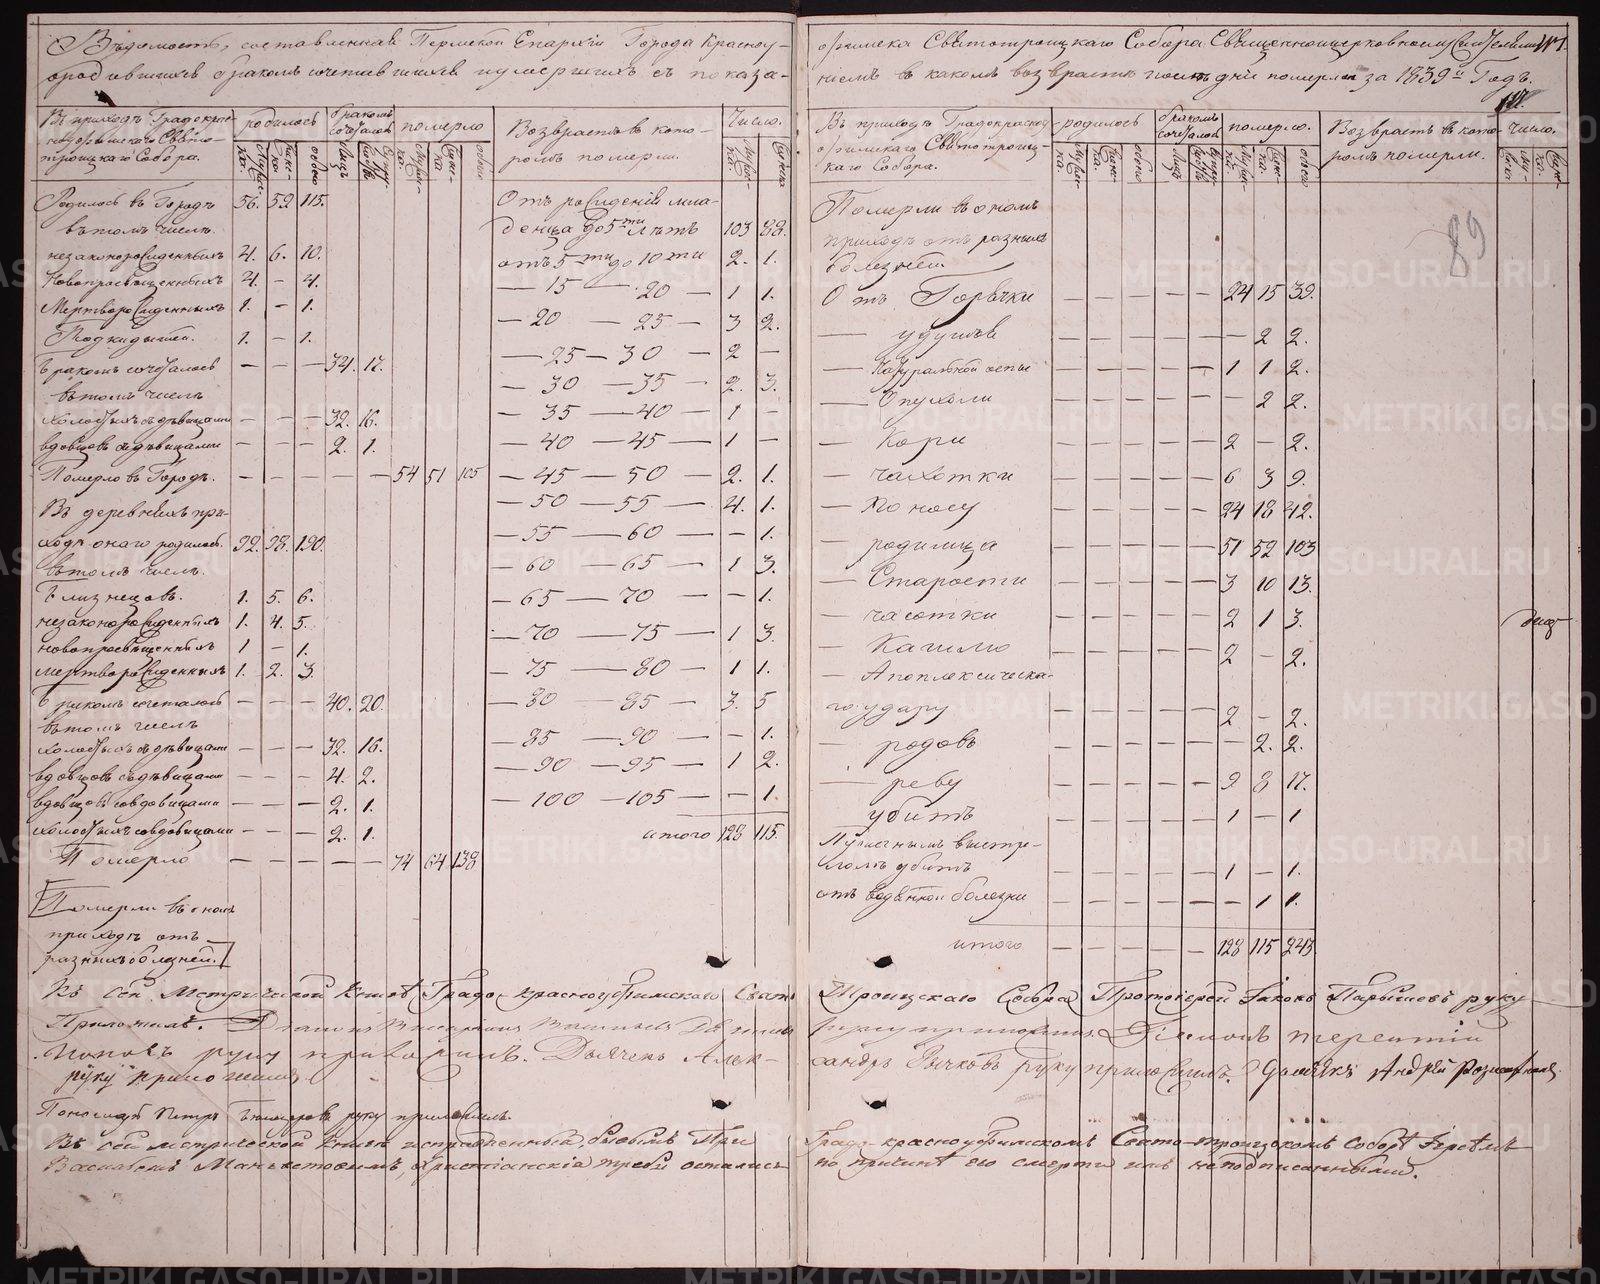 Ведомость, составленная Пермской Епархіи Города Красноу-
родившихся бракомъ сочетавшихся и умершихъ съ показа-
Въ приходѣ Градокрас-
ноуфимскаго Свято-
троицкаго Собора.
родилось
бракомъ сочеталось
померло
Возврастъ въ кото-
ромъ померли.
Число.
Родилось въ Городѣ 56. 59 115.
въ томъ числѣ.
незаконорожденныхъ 4. 6. 10.
Новопросвященныхъ 4. – 4.
Мертворожденныхъ 1. – 1.
Подкидышей. 1. – 1.
Бракомъ сочеталось – – – 34. 17.
въ томъ числѣ
холостыхъ съ дѣвицами – – – 32. 16.
вдовцовъ съ дѣвицами – – – 2. 1.
Померло въ Городѣ. – – – – – 54 51 105
Въ деревняхъ при-
ходѣ онаго родилось. 92. 98. 190.
въ томъ числѣ.
Близнецовъ. 1. 5. 6.
незаконорожденныхъ 1. 4. 5.
новопросвященныхъ 1 – 1.
мертворожденныхъ 1. 2. 3.
Бракомъ сочеталось – – – 40. 20.
въ томъ числѣ
холостыхъ съ дѣвицами – – – 32. 16.
вдовцовъ съ дѣвицами – – – 4. 2.
вдовцовъ со вдовицами – – – 2. 1.
холостыхъ со вдовицами – – – 2. 1.
Померло – – – – – 74 64 138
Померли въ ономъ
приходѣ отъ
разныхъ болезней.
Отъ рожденія мла-
денца до 5ти лѣтъ 103 88.
отъ 5ти до 10ти 2. 1.
– 15 – 20 – 1 1.
– 20 – 25 – 3 2.
– 25 – 30 – 2 –
– 30 – 35 – 2. 3.
– 35 – 40 – 1 –
– 40 – 45 – 1 –
– 45 – 50 – 2. 1.
– 50 – 55 – 4. 1.
– 55 – 60 – – 1.
– 60 – 65 – 1 3.
– 65 – 70 – – 1.
– 70 – 75 – 1 3.
– 75 – 80 – 1 1.
– 80 – 85 – 3. 5
85 – 90 – – 1.
– 90 – 95 – 1 2.
– 100 – 105 – – 1.
итого 128 115.
Къ сей Метрической Книгѣ Градо-красноуфимскаго Свято
Приложилъ.
Поповъ руку приложилъ. Дьячекъ Алек-
руку приложилъ
Пономарь Петръ руку приложилъ.
Въ сей метрической книгѣ исправленныя бывшимъ При
Василіемъ христіанскія требы остались
офимска Святотроицкаго Собора Священноцерковнослужителями №1.
ніемъ въ какомъ возврастѣ кто померли за 1839й Годъ.
89
Въ приходѣ Градокрасноу-
фимскаго Святотроиц-
каго Собора.
родилось
бракомъ сочеталось
померло.
Возврастъ въ кото-
ромъ померли.
число.
Померли въ ономъ
приходѣ отъ разныхъ
болезней.
Отъ Горячки – – – – – 24 15 39.
– удушья – – – – – – 2 2.
– Натуральной оспы – – – – – 1 1 2.
– Опухоли – – – – – – 2 2.
– Кори – – – – – 2 – 2.
– чахотки – – – – – 6 3 9.
– Поносу – – – – – 24 18 42.
– родимца – – – – – 51 52 103
– Старости – – – – – 3 10 13.
– часотки – – – – – 2 1 3.
– Кашлю – – – – – 2 – 2.
– Апоплексическа-
го удару – – – – – 2 – 2.
– родовъ – – – – – – 2. 2.
– реву – – – – – 9 8 17.
– убитъ – – – – – 1 – 1
Пушечнымъ выстре-
ломъ убитъ – – – – – 1 – 1.
отъ водяной болезни – – – – – – 1 1.
итого – – – – – 128 115 243
Троицкаго Собора Протоіерей Іаковъ Парышевъ руку
руку приложилъ. Діаконъ Терентій
сандръ Бычковъ руку приложилъ. Андрей
Градо-красноуфимскомъ Свято-троицкомъ Соборѣ Іереемъ
по причинѣ его смерти имъ неподписанными.
METRIKI.GASO-URAL.RU